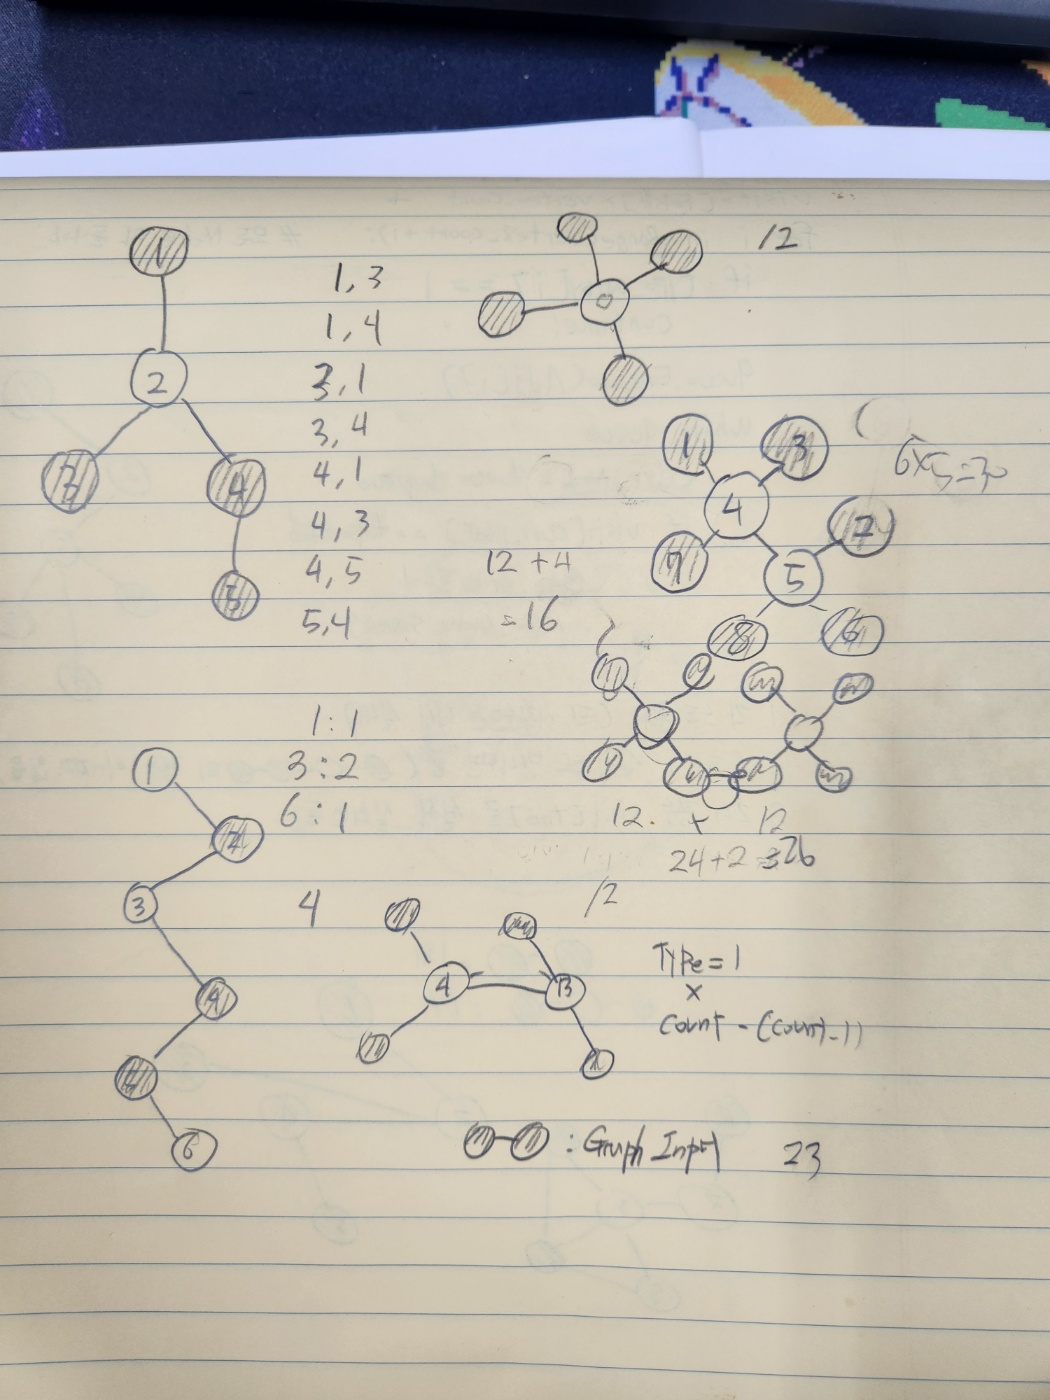 1
2
3
4
5
1,3
1,4
3,1
3,4
4,1
4,3
4,5
5,4
12
1
3
4
7
5
8
6
6×5=30
12+4
=16
1:1
3:2
6:1
1
2
3
4
6
4
12. + 12
24+2=26
12
4
Type=1
×
count-(count-1)
: Graph Input
23